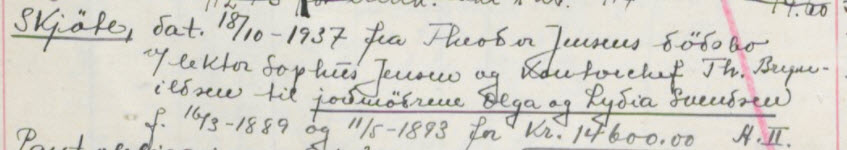 Skjöte, dat. 18/10-1937 fra Theodor Jensens dödsbo
v/ lektor Sophus Jensen og Kontorchef Th. Bryn-
ildsen til jordmödrene Olga og Lydia Svendsen
f. 16/3-1889 og 11/5-1893 for Kr. 14600.00 H.II.